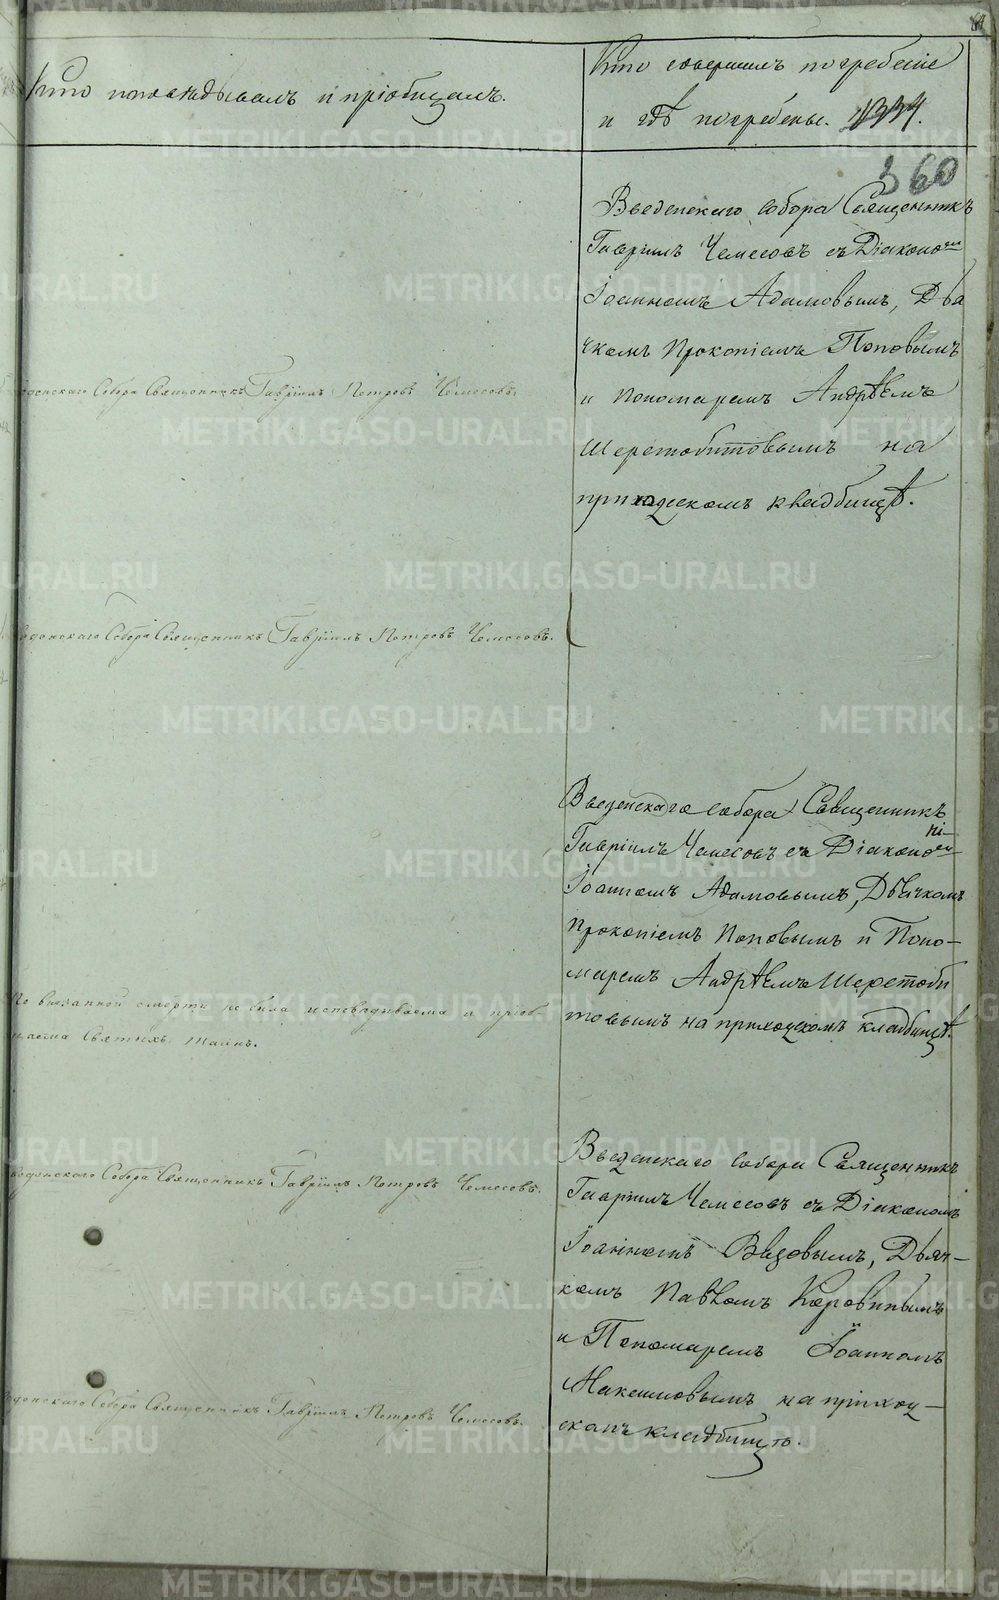 Кто исповѣдывалъ и пріобщалъ.
Кто совершилъ погребеніе
и гдѣ погребены. 1334.
360
Введенскаго собора Священникъ
Гавріилъ Чемесовъ съ Діакономъ
Іоанномъ Адамовымъ, Дья
чкомъ Прокопіемъ Поповымъ
и Пономаремъ Андрѣемъ
Шеретобитовымъ на
приходскомъ кладбищѣ.
Собора Священникъ Гавріилъ Петровъ Чемесовъ.
Собора Священникъ Гавріилъ Петровъ Чемесовъ.
Введенскаго собора Священникъ
Гавріилъ Чемесовъ съ Діакономъ
Іоанномъ Адамовымъ, Дьячкомъ
Прокопіемъ Поповымъ и Поно-
маремъ Андрѣемъ Шеретоби
товымъ на приходскомъ кладбищѣ.
По внезапной смерти не была исповѣдываема и пріоб
щаема Святыхъ Таинъ.
Собора Священникъ Гавріилъ Петровъ Чемесовъ.
Введенскаго собора Священникъ
Гавріилъ Чемесовъ съ Діакономъ
Іоанномъ Дьяч-
комъ Павломъ Коровинымъ
и Пономаремъ Іоанномъ
Максимовымъ на приход-
скомъ кладбищѣ.
Собора Священникъ Гавріилъ Петровъ Чемесовъ.
METRIKI.GASO-URAL.RU